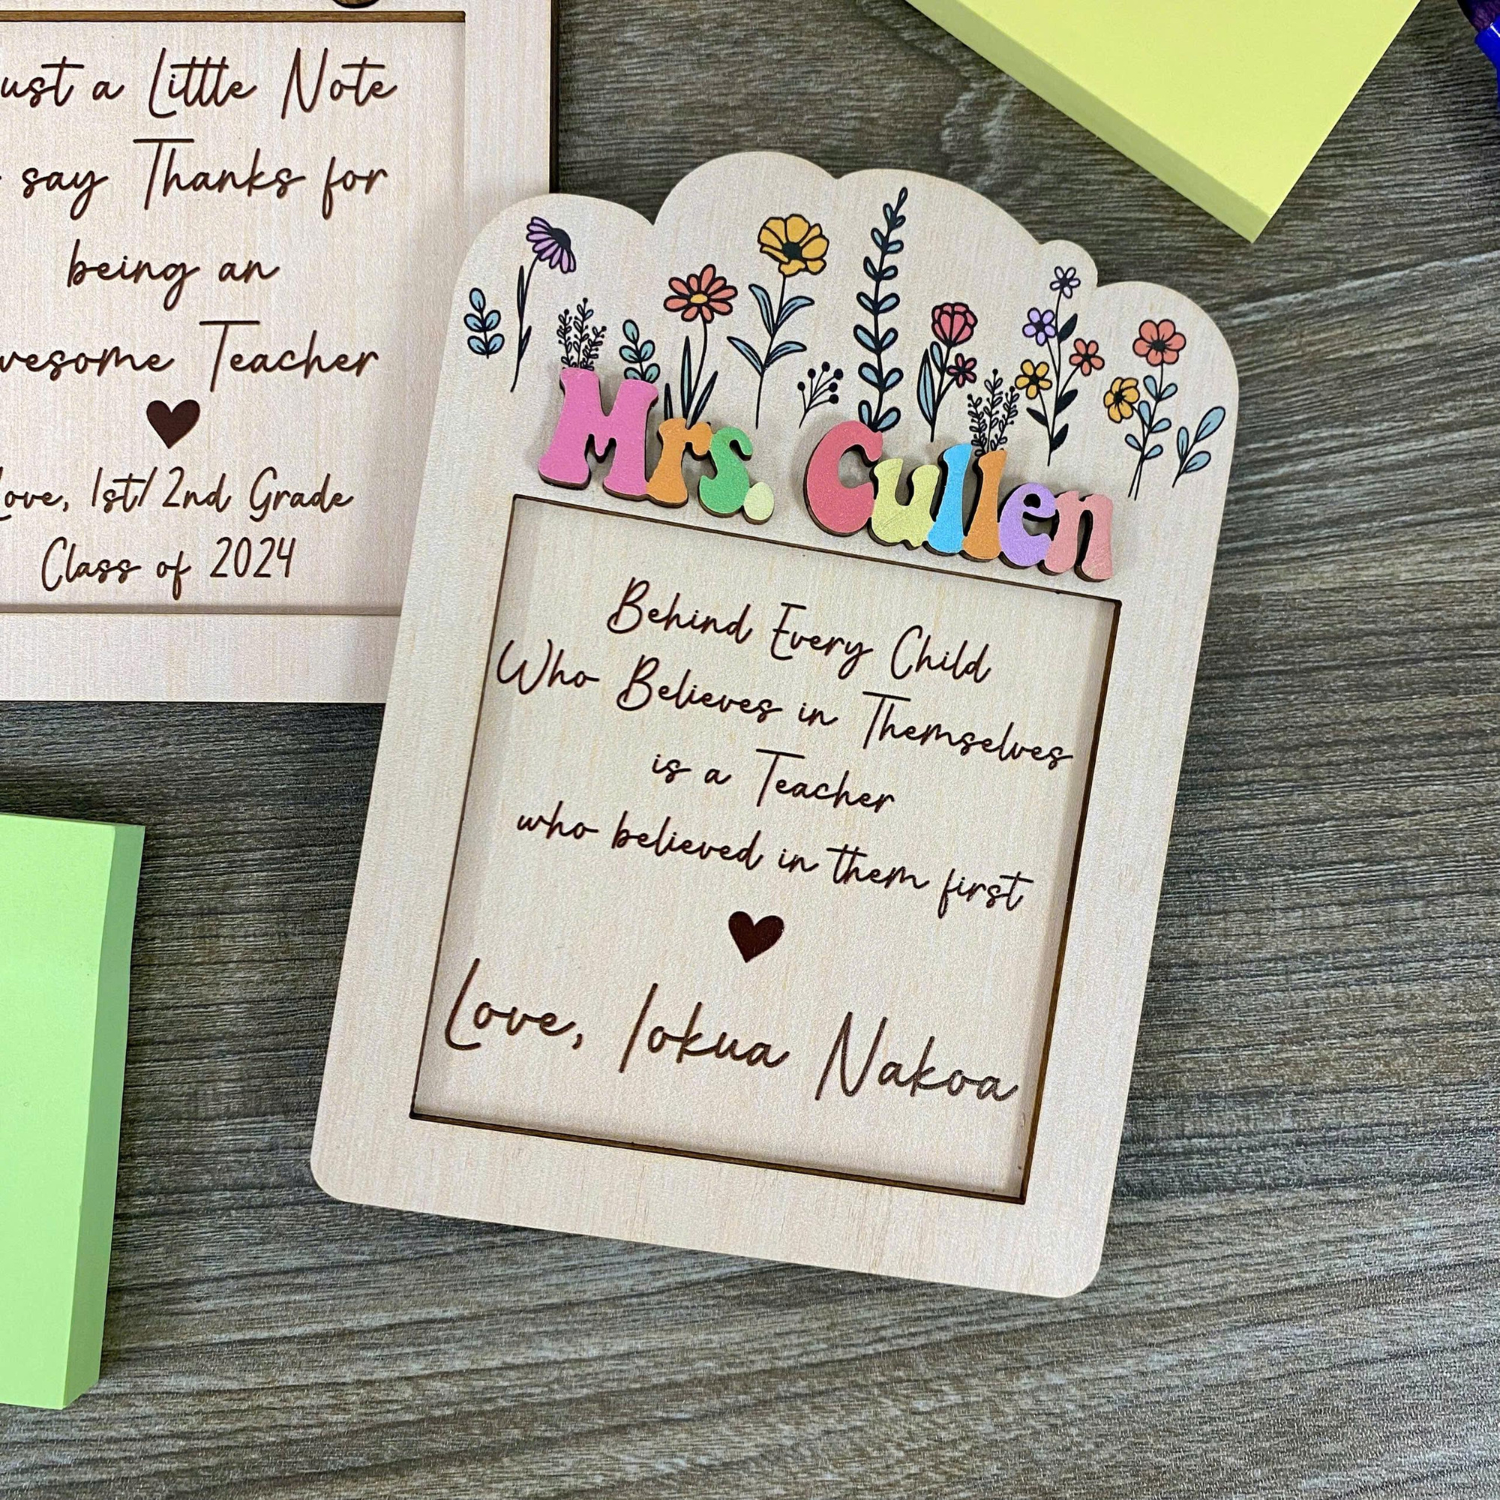 ust a Little Note
say Thanks for
being an
wesome Teacher
Love, 1st/2nd Grade
Class of 2024
Mrs. Cullen
Behind Every Child
Who Believes in Themselves
is a Teacher
who believed in them first
Love, Iokua Nakoa